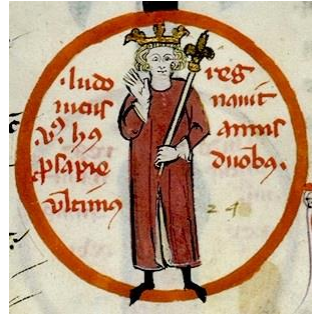 ·ludo
uicus
·vꝰ· hꝰ
ꝓsapie
vltimꝰ
reg
nauit
annis
duobꝰ.
24